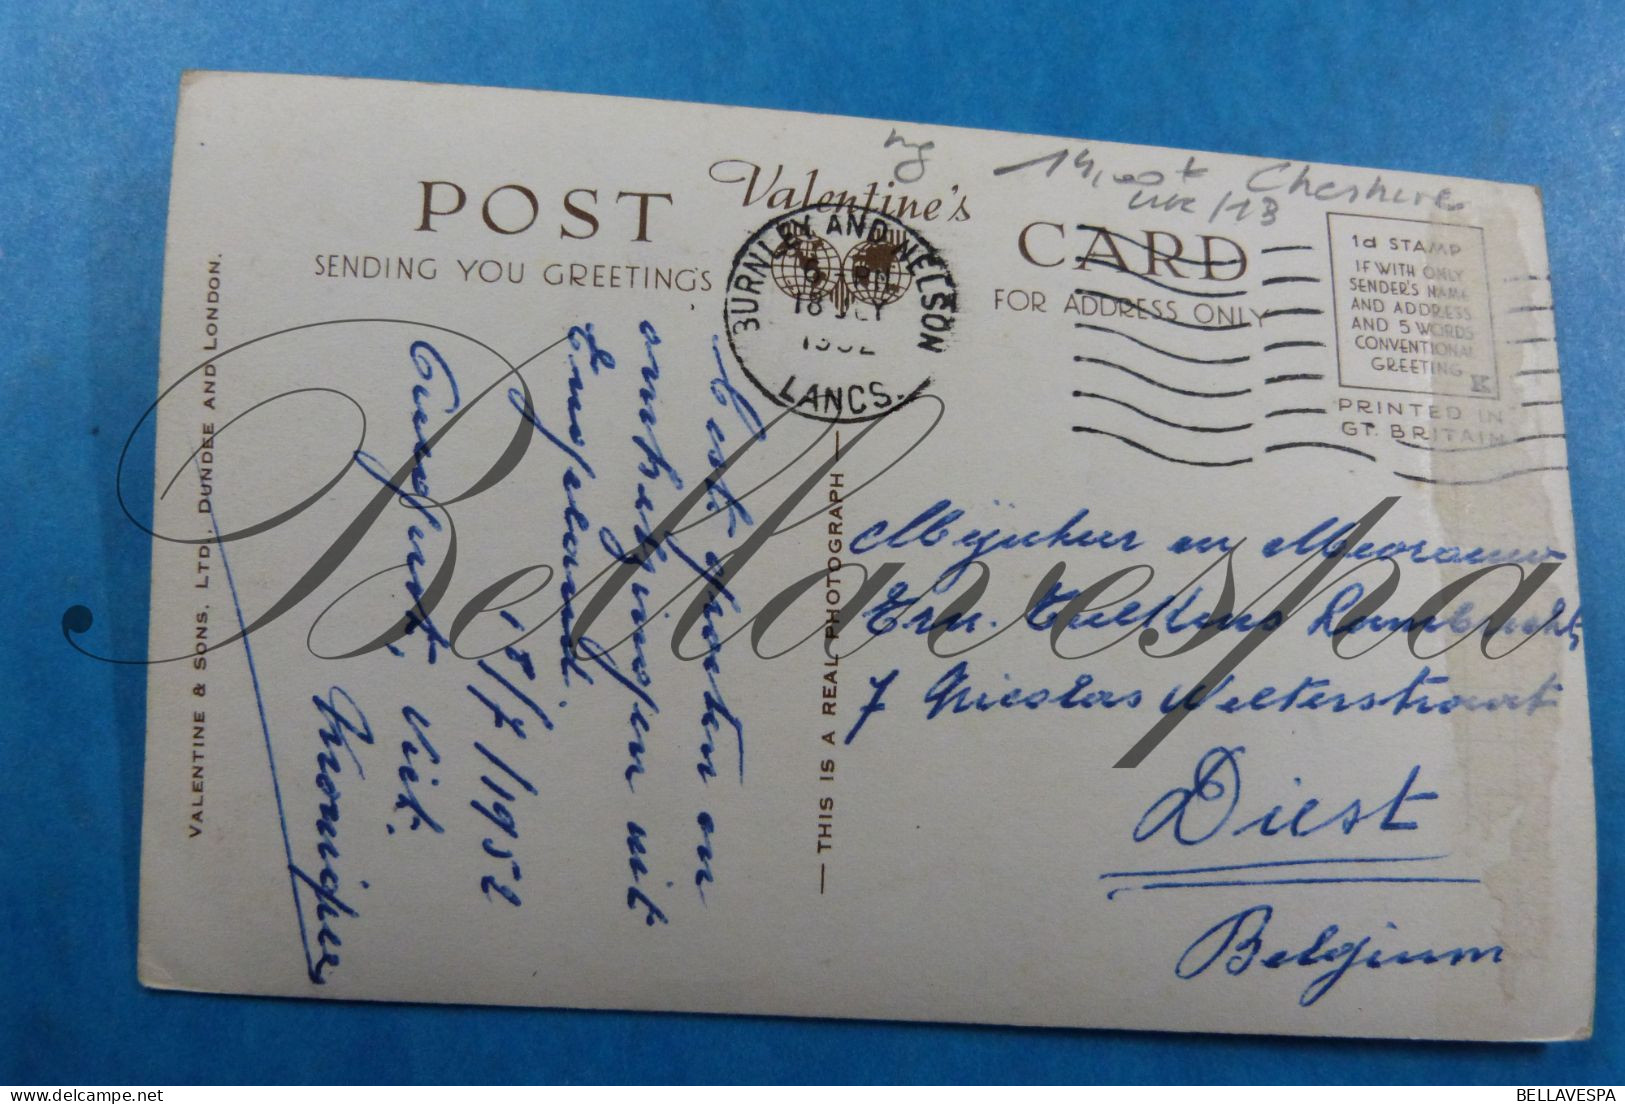 ng 14, Cheshire
UK/13
POST Valentine's CARD
SENDING YOU GREETINGS
FOR ADDRESS ONLY
BURNLEY AND NELSON
18 JLY
1952
LANCS.
1d STAMP
IF WITH ONLY
SENDER'S NAME
AND ADDRESS
AND 5 WORDS
CONVENTIONAL
GREETING
K
PRINTED IN
GT. BRITAIN
VALENTINE & SONS, LTD., DUNDEE AND LONDON.
THIS IS A REAL PHOTOGRAPH
Best groeten en
uit
Engeland.
18/7/1952
Mijnheer en Mevrouw
Ern.
7 Nicolas
Diest
Belgium
Bellavespa
BELLAVESPA